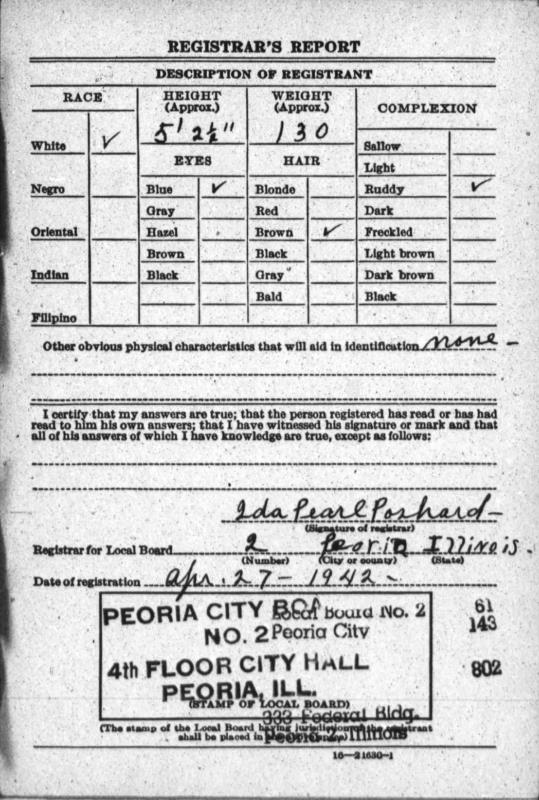 REGISTRAR'S REPORT
DESCRIPTION OF REGISTRANT
RACE
HEIGHT
(Approx.)
WEIGHT
(Approx.)
COMPLEXION
5' 2½"
130
White ✓
Sallow
EYES
HAIR
Light
Negro
Blue ✓
Blonde
Ruddy ✓
Gray
Red
Dark
Oriental
Hazel
Brown ✓
Freckled
Brown
Black
Light brown
Indian
Black
Gray
Dark brown
Bald
Black
Filipino
Other obvious physical characteristics that will aid in identification none -
I certify that my answers are true; that the person registered has read or has had
read to him his own answers; that I have witnessed his signature or mark and that
all of his answers of which I have knowledge are true, except as follows:
Ida Pearl Poshard
(Signature of registrar)
Registrar for Local Board 2 Peoria Illinois.
(Number) (City or county) (State)
Date of registration Apr. 27 - 1942 -
PEORIA CITY Local Board No. 2
NO. 2 Peoria City
4th FLOOR CITY HALL
PEORIA, ILL.
61
143
802
(STAMP OF LOCAL BOARD)
333 Federal Bldg.
(The stamp of the Local Board having jurisdiction of the registrant
shall be placed in
Peoria 2, Illinois
16—21630-1